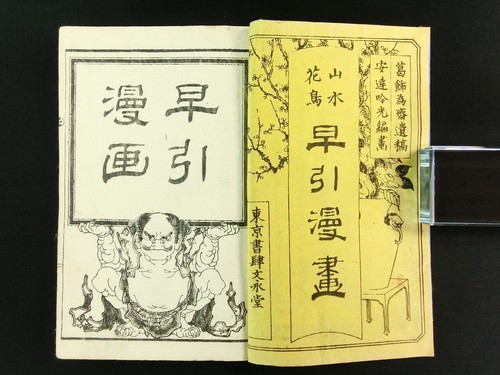 葛飾為齋遺稿
安達吟光編畫
山水
花鳥
早引漫畫
東京書肆文永堂
早引
漫画